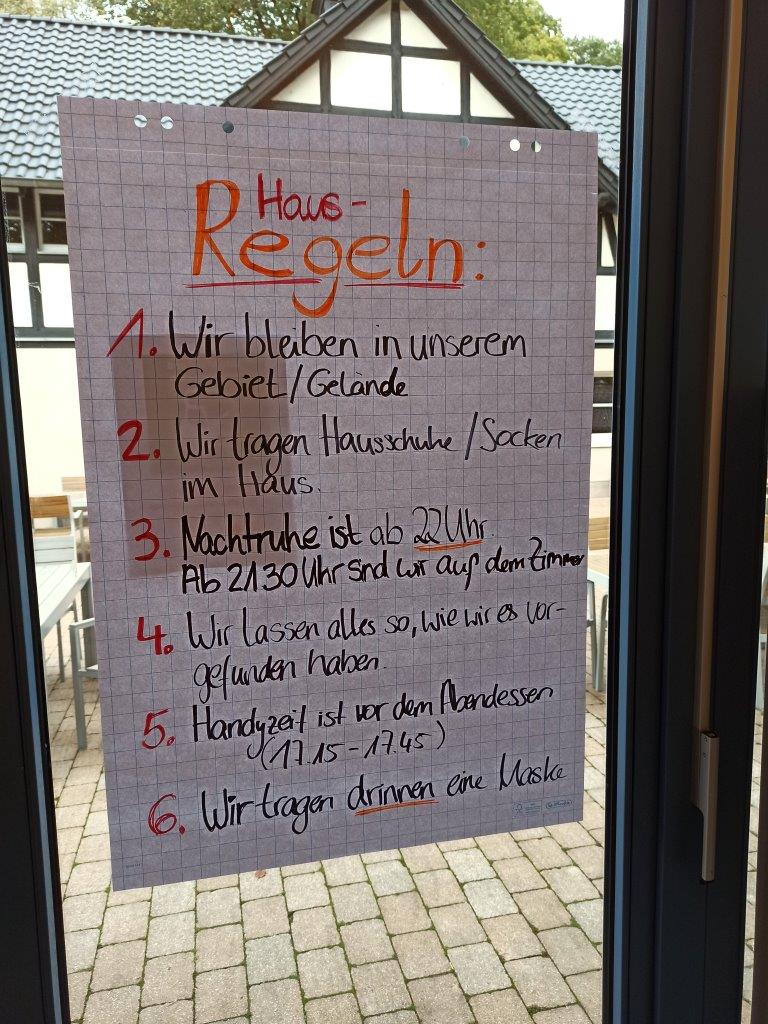 Haus-
Regeln:
1. Wir bleiben in unserem
Gebiet/Gelände
2. Wir tragen Hausschuhe/Socken
im Haus.
3. Nachtruhe ist ab 22 Uhr.
Ab 2130 Uhr sind wir auf dem Zimmer
4. Wir lassen alles so, wie wir es vor-
gefunden haben.
5. Handyzeit ist vor dem Abendessen
(17.15-17.45)
6. Wir tragen drinnen eine Maske